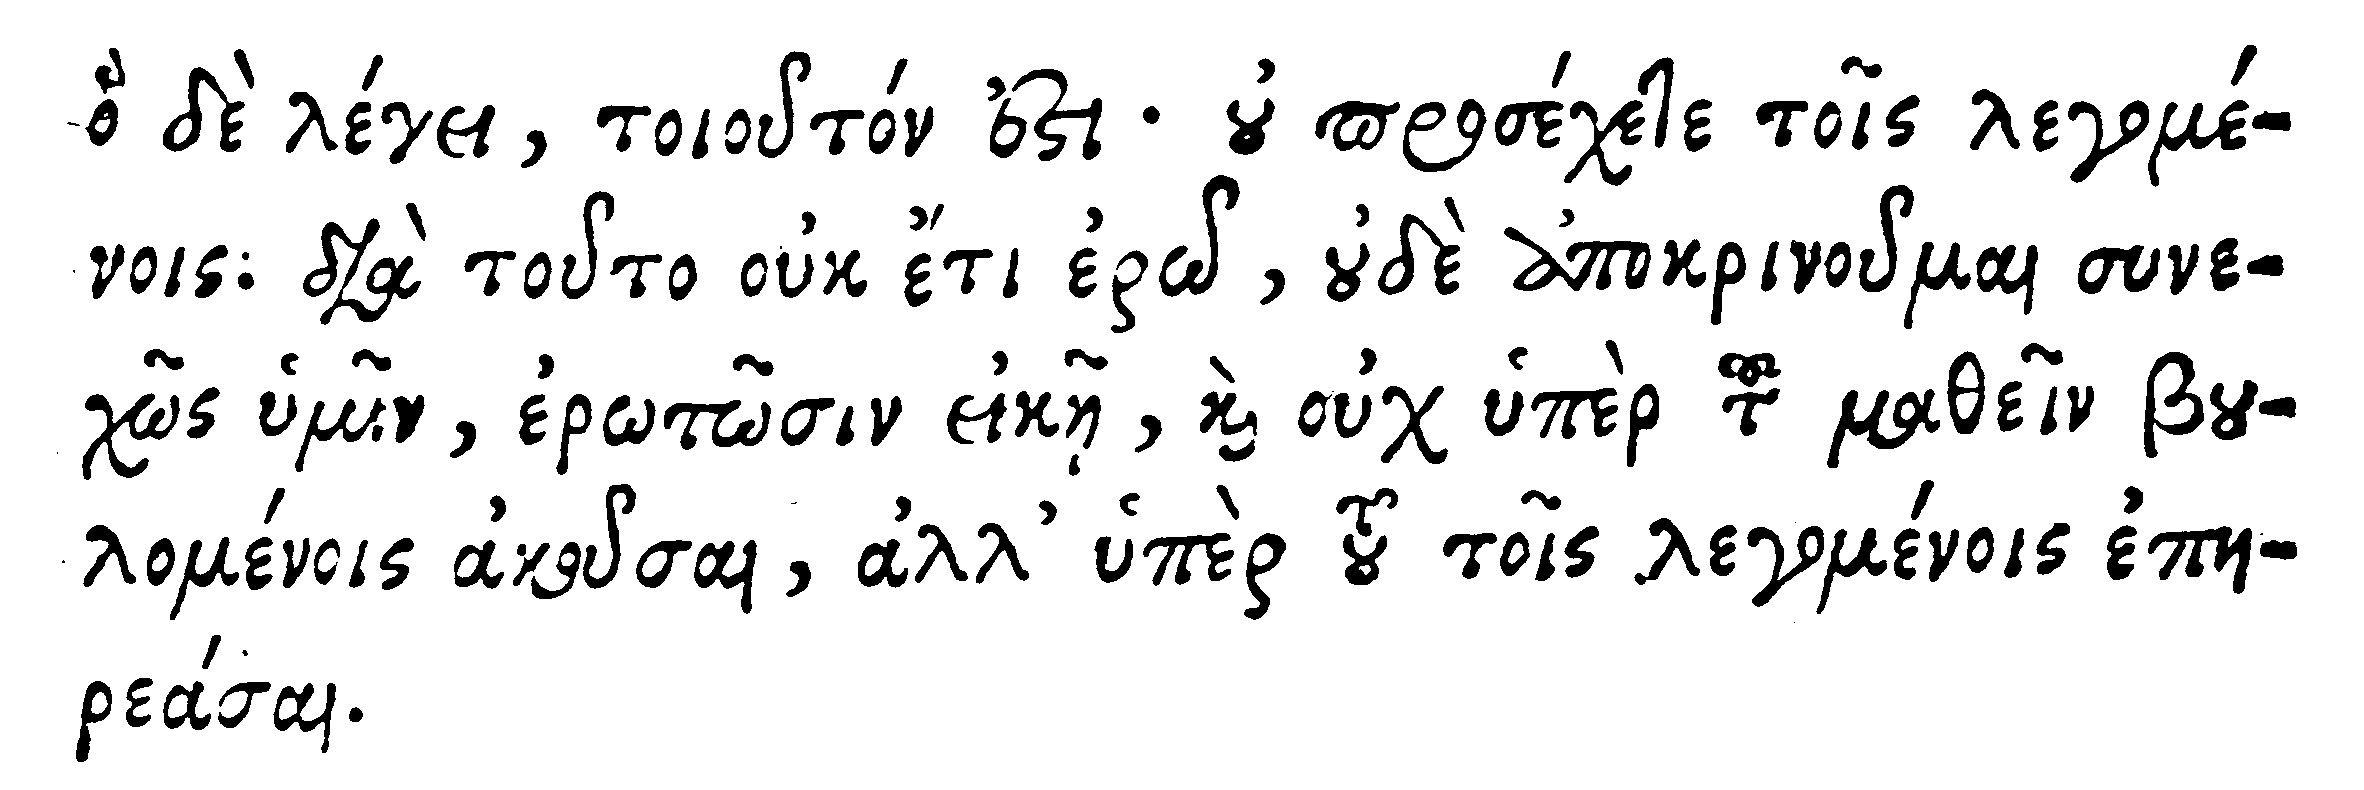 ὃ δὲ λέγει, τοιοῦτόν ἐστι· οὐ προσέχετε τοῖς λεγομέ-
νοις: διὰ τοῦτο οὐκ ἔτι ἐρῶ, οὐδὲ ἀποκρινοῦμαι συνε-
χῶς ὑμῖν, ἐρωτῶσιν εἰκῇ, καὶ οὐχ ὑπὲρ τοῦ μαθεῖν βου-
λομένοις ἀκοῦσαι, ἀλλ᾽ ὑπὲρ τοῦ τοῖς λεγομένοις ἐπη-
ρεάσαι.